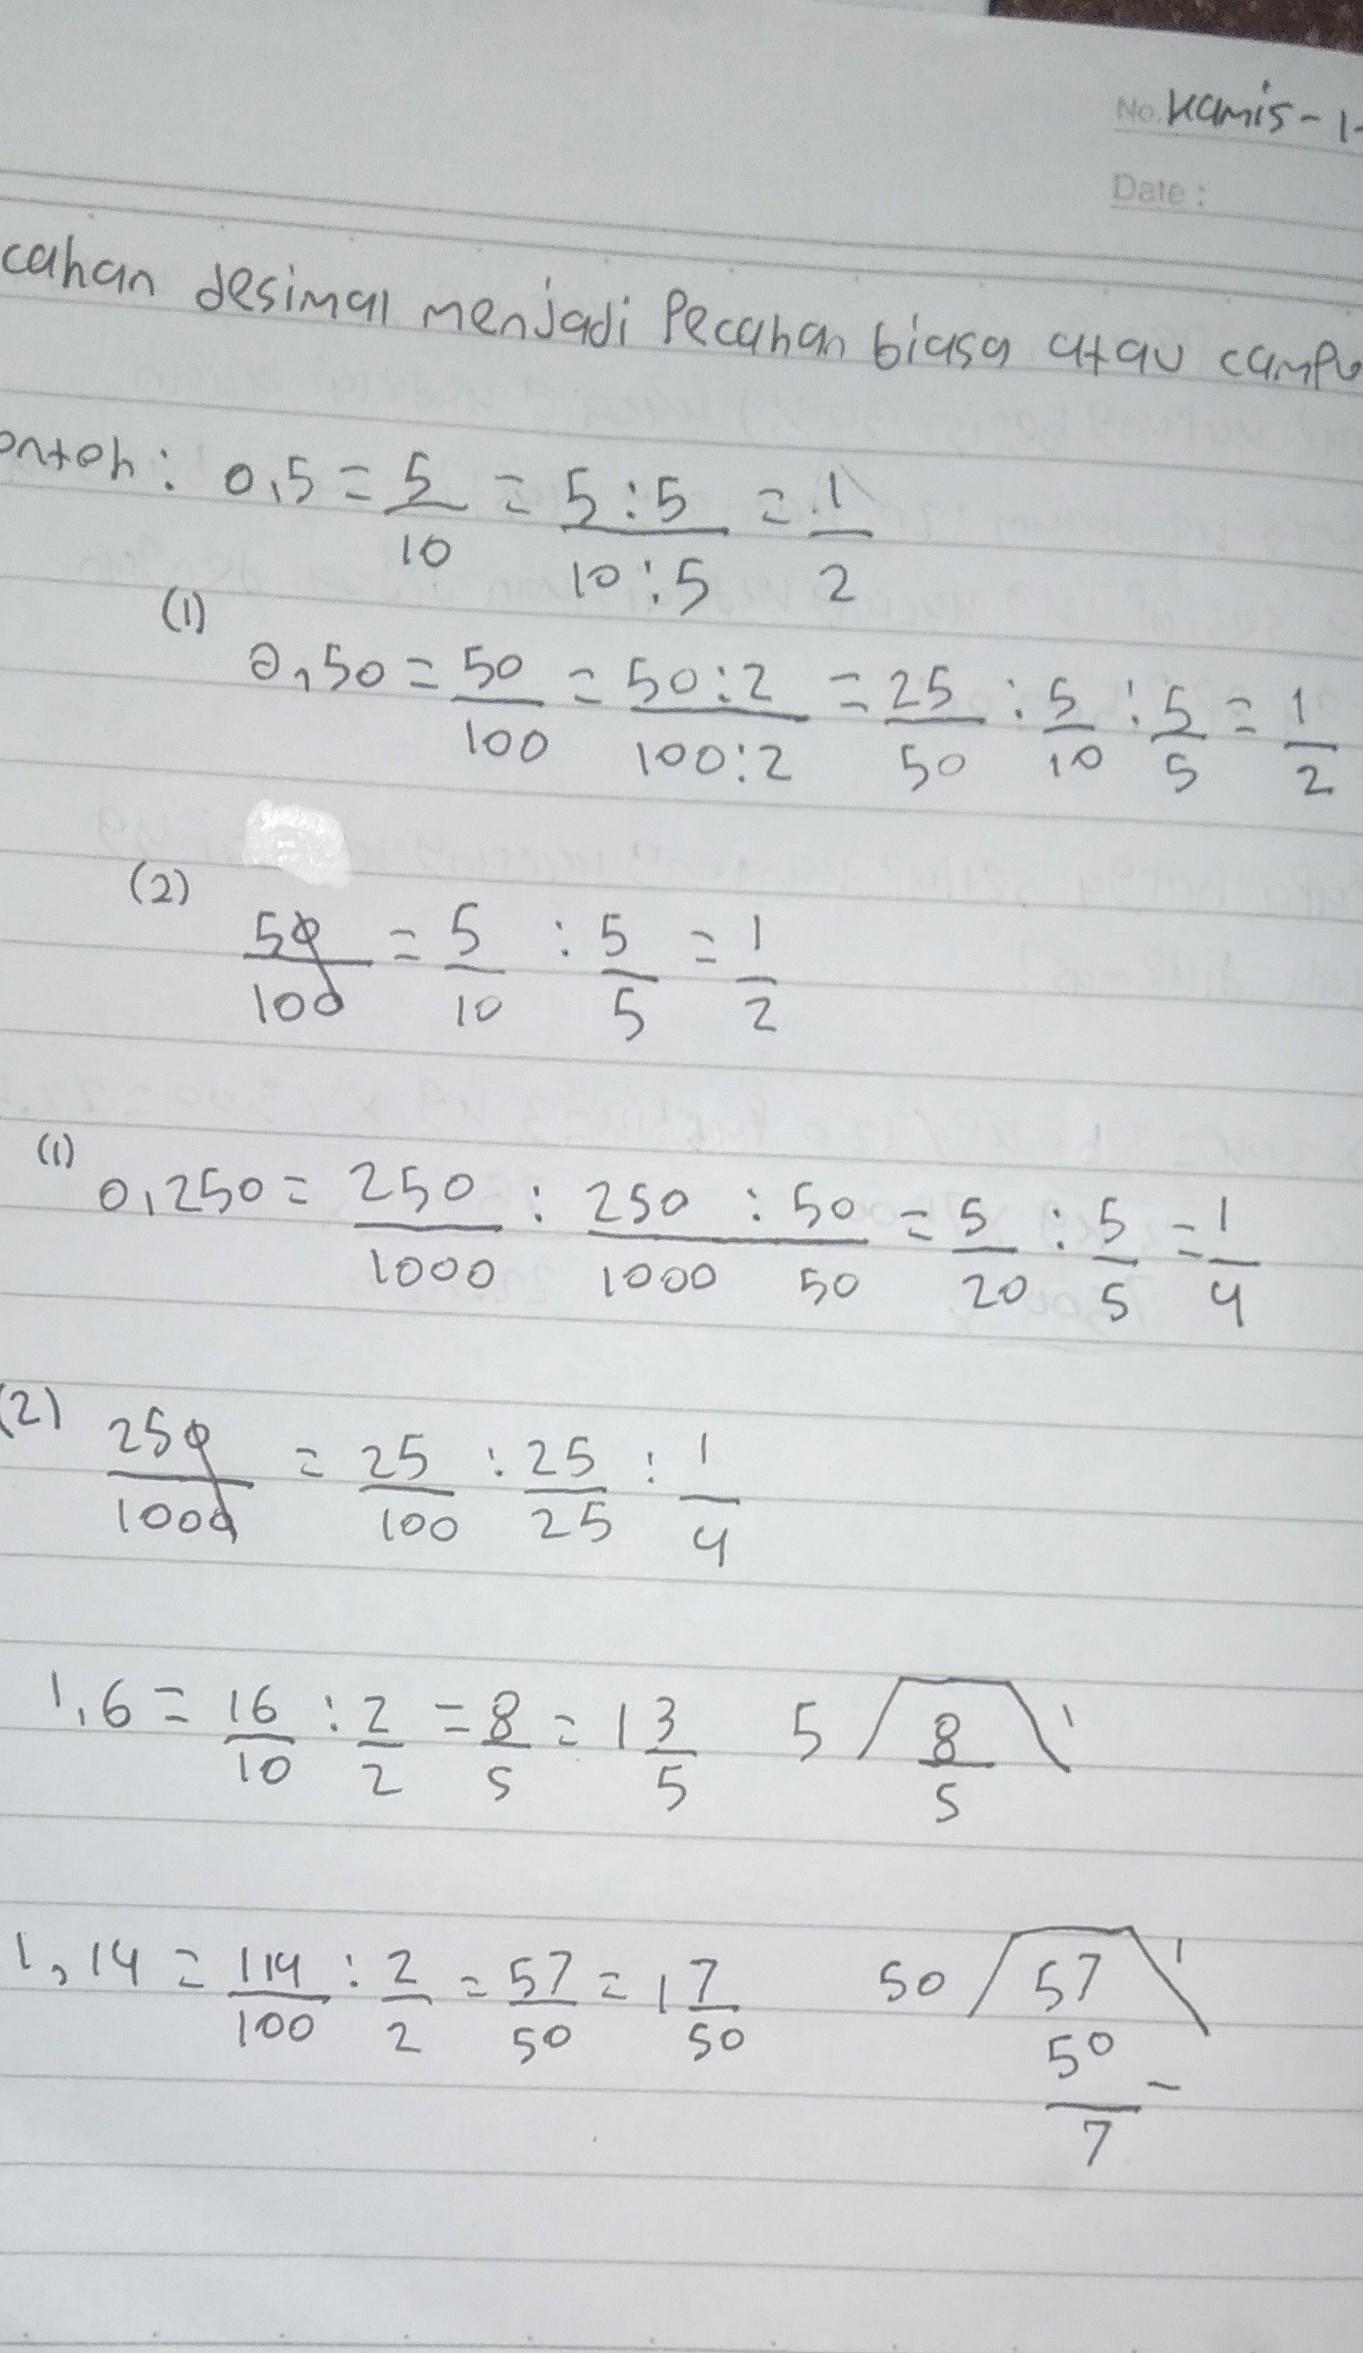 No. Kamis - 1-
Date :
cahan desimal menjadi Pecahan biasa atau campu
ontoh : 0,5 = 5/10 = 5:5/10:5 = 1/2
(1) 0,50 = 50/100 = 50:2/100:2 = 25/50 : 5/10 : 5/5 = 1/2
(2) 50/100 = 5/10 : 5/5 = 1/2
(1) 0,250 = 250/1000 : 250/1000 : 50/50 = 5/20 : 5/5 = 1/4
(2) 250/1000 = 25/100 : 25/25 : 1/4
1,6 = 16/10 : 2/2 = 8/5 = 1 3/5 5 / 8 \ 1
5
1,14 = 114/100 : 2/2 = 57/50 = 1 7/50 50 / 57 \ 1
50 -
7